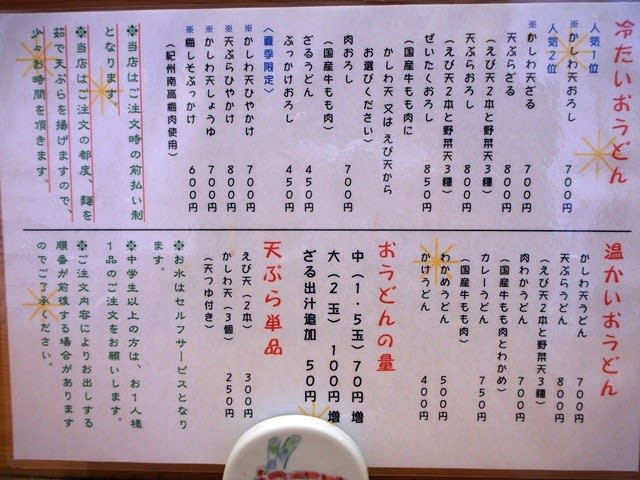 冷たいおうどん
人気1位
※かしわ天おろし 700円
人気2位
※かしわ天ざる 700円
天ぷらざる 800円
(えび天2本と野菜天3種)
天ぷらおろし 800円
(えび天2本と野菜天3種)
ぜいたくおろし 850円
(国産牛もも肉に
かしわ天 又は えび天から
お選びください)
肉おろし 700円
(国産牛もも肉)
ざるうどん 450円
ぶっかけおろし 450円
〈夏季限定〉
※かしわ天ひやかけ 700円
※天ぷらひやかけ 800円
※かしわ天しょうゆ 700円
※梅しそぶっかけ 600円
(紀州南高梅肉使用)
※当店はご注文時の前払い制
となります。
※当店はご注文の都度、麺を
茹で天ぷらを揚げますので、
少々お時間を頂きます。
温かいおうどん
かしわ天うどん 700円
天ぷらうどん 800円
(えび天2本と野菜天3種)
肉わかうどん 700円
(国産牛もも肉とわかめ)
カレーうどん 750円
(国産牛もも肉)
わかめうどん 500円
かけうどん 400円
おうどんの量
中(1.5玉)70円 増
大(2玉)100円 増
ざる出汁追加 50円
天ぷら単品
えび天(2本) 300円
かしわ天(3個) 250円
(天つゆ付き)
※お水はセルフサービスとなり
ます。
※中学生以上の方は、お1人様
1品のご注文をお願いします。
※ご注文内容によりお出しする
順番が前後する場合があります
のでご了承ください。